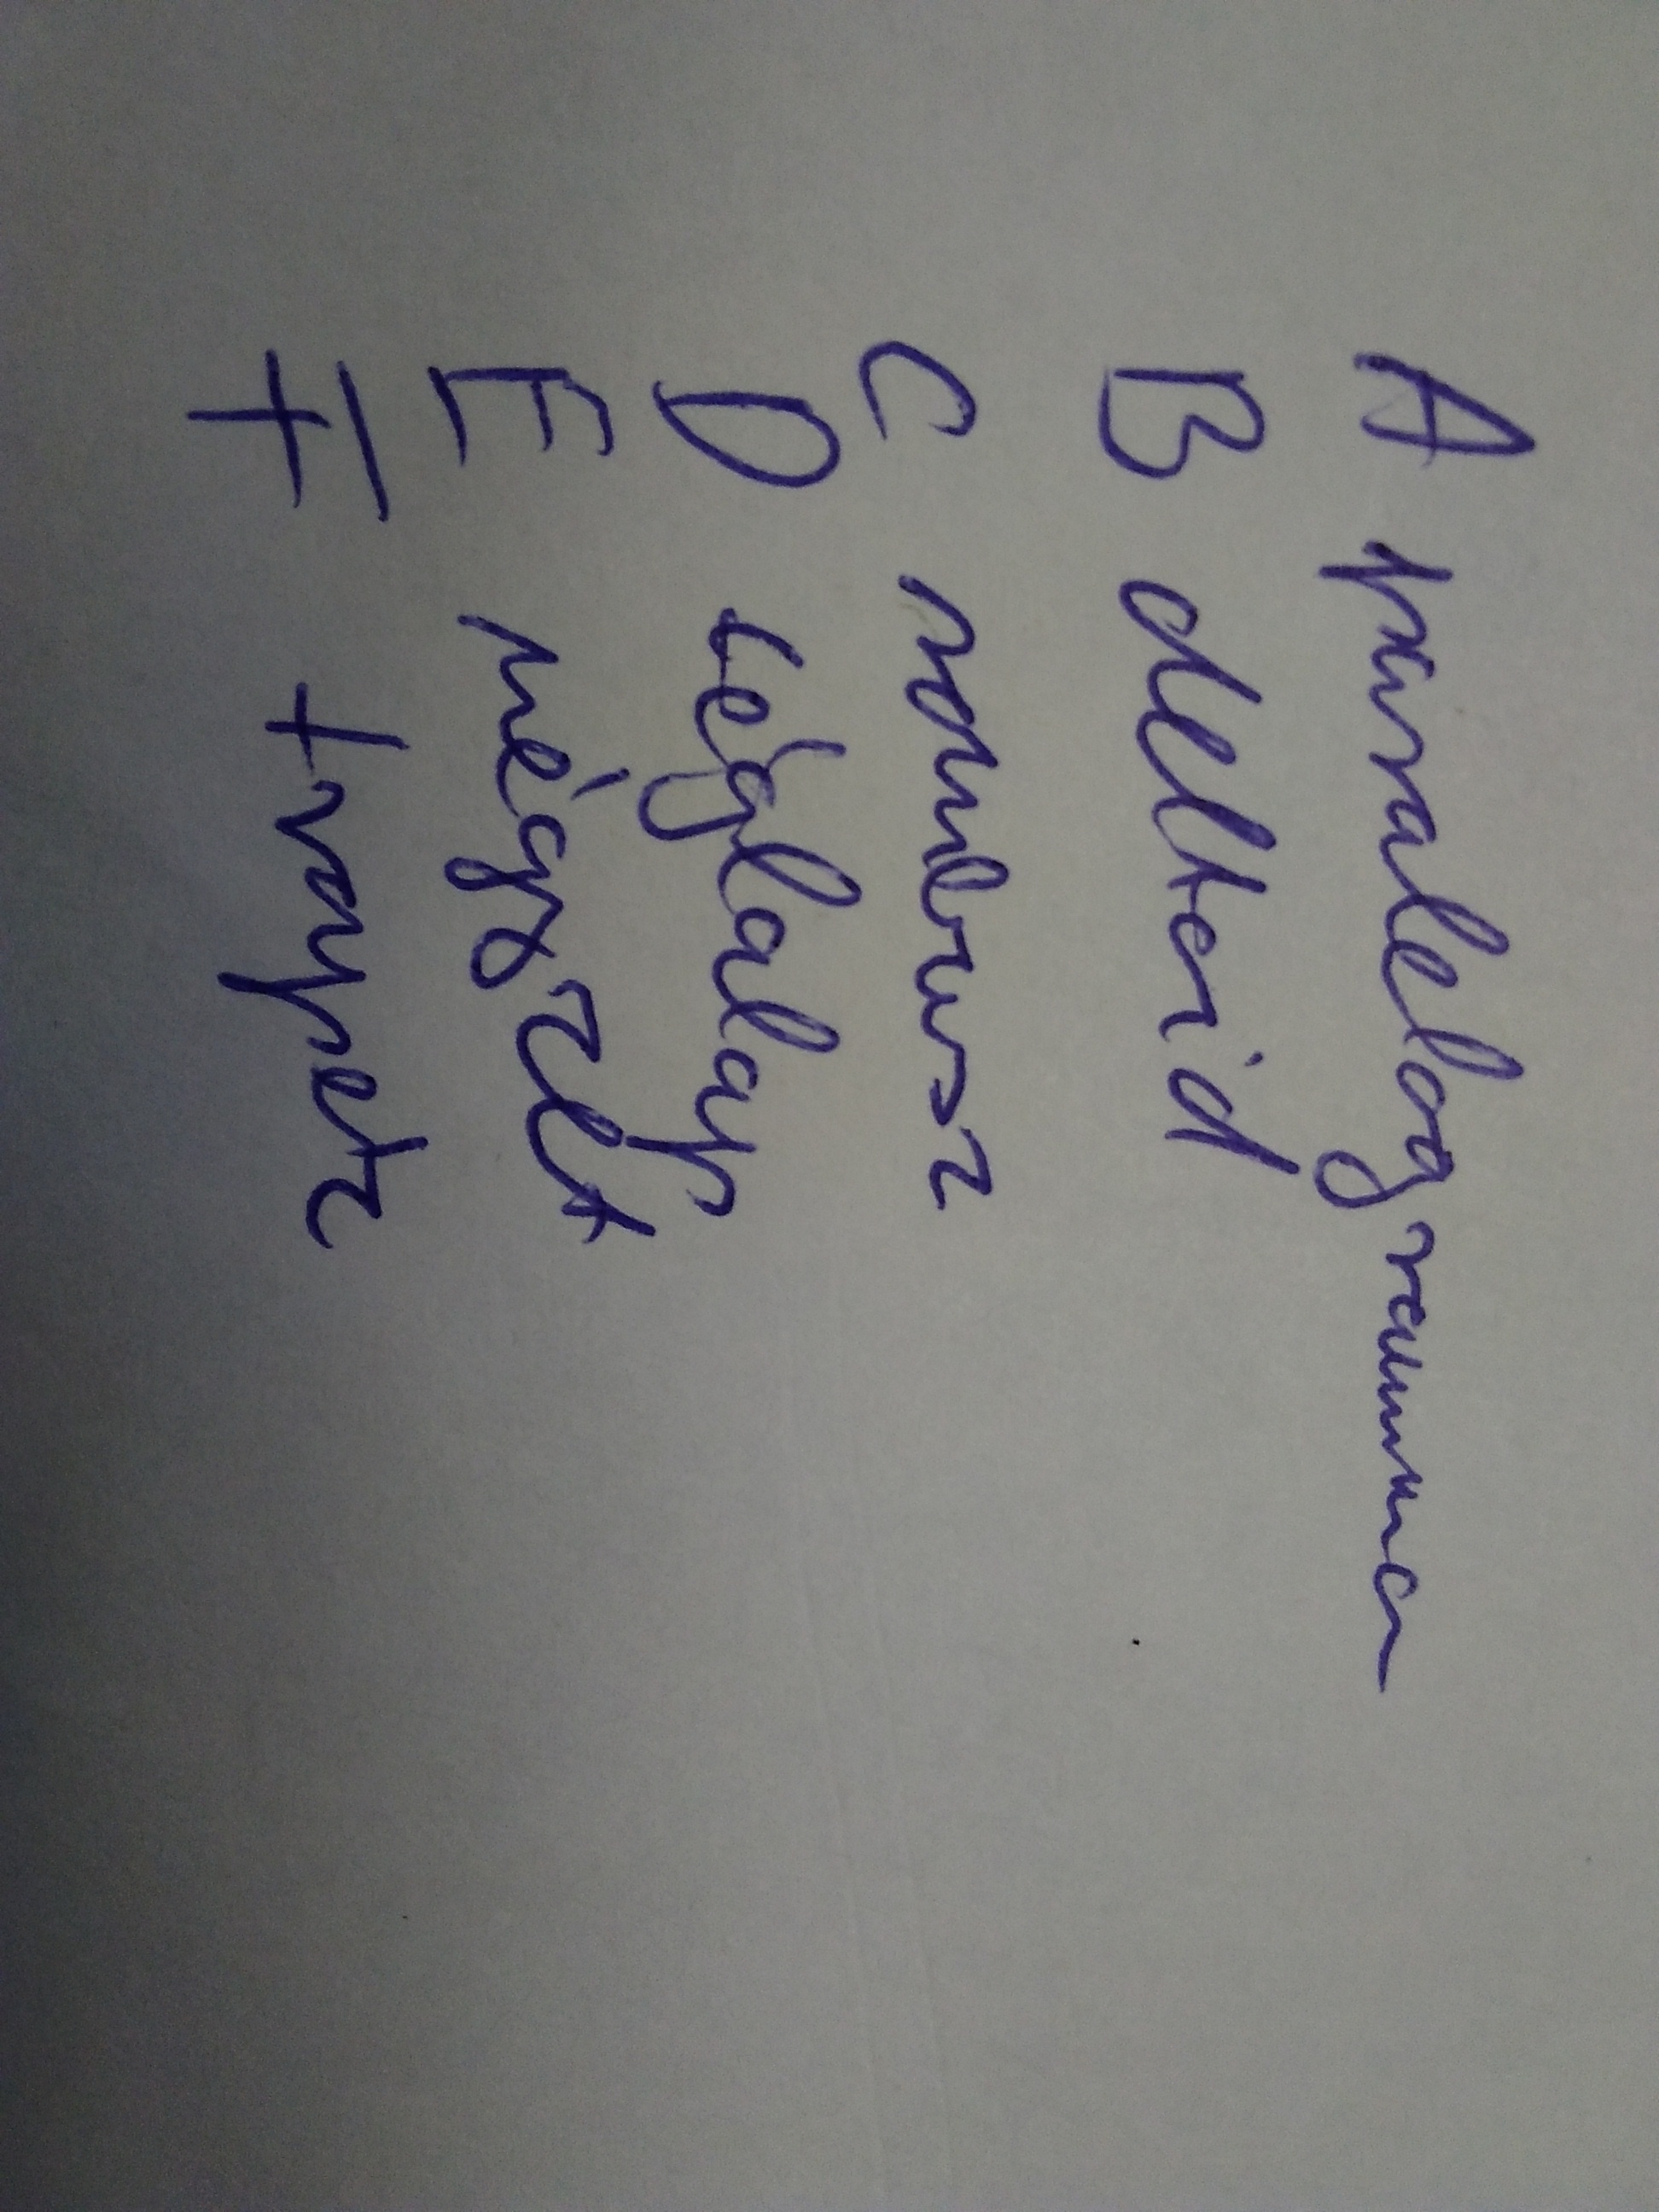 A paralelogramma
B deltoid
C rombusz
D téglalap
E négyzet
F trapéz